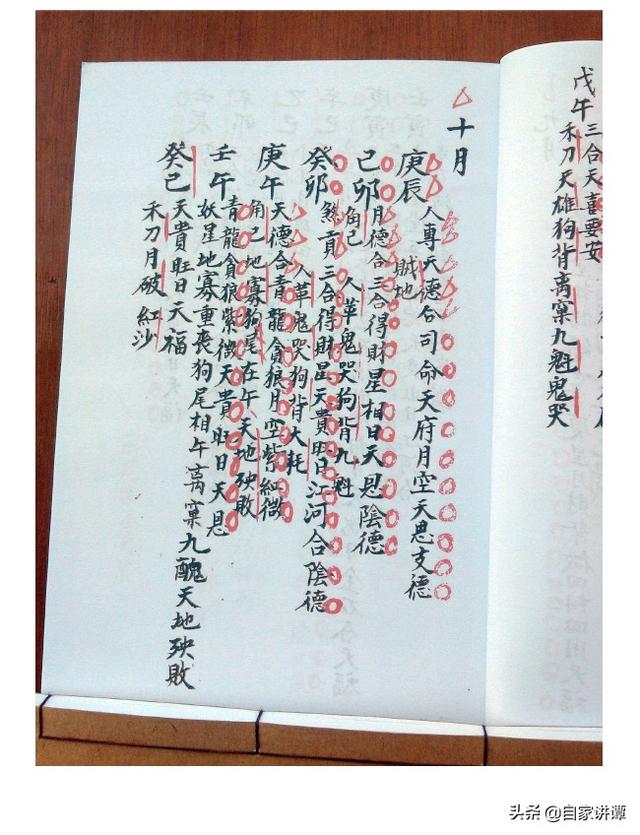 戊午 三合天喜要安
禾刀天雄狗背离窠九魁鬼哭
十月
庚辰 人專天德合司命天府月空天恩支德
賊地
己卯 月德合三合得財星相日天恩陰德
角己 人革鬼哭狗背九魁
癸卯 煞貢三合得財星天貴旺日江河合陰德
人革鬼哭狗背大耗
庚午 天德合青龍貪狼月空紫紅微
角己地寡狗尾在午天地殃敗
壬午 青龍貪狼紫微天貴旺日天恩
妖星地寡重喪狗尾相午离窠九醜天地殃敗
癸巳 天貴旺日天福
禾刀月破紅沙
头条 @自家讲谭